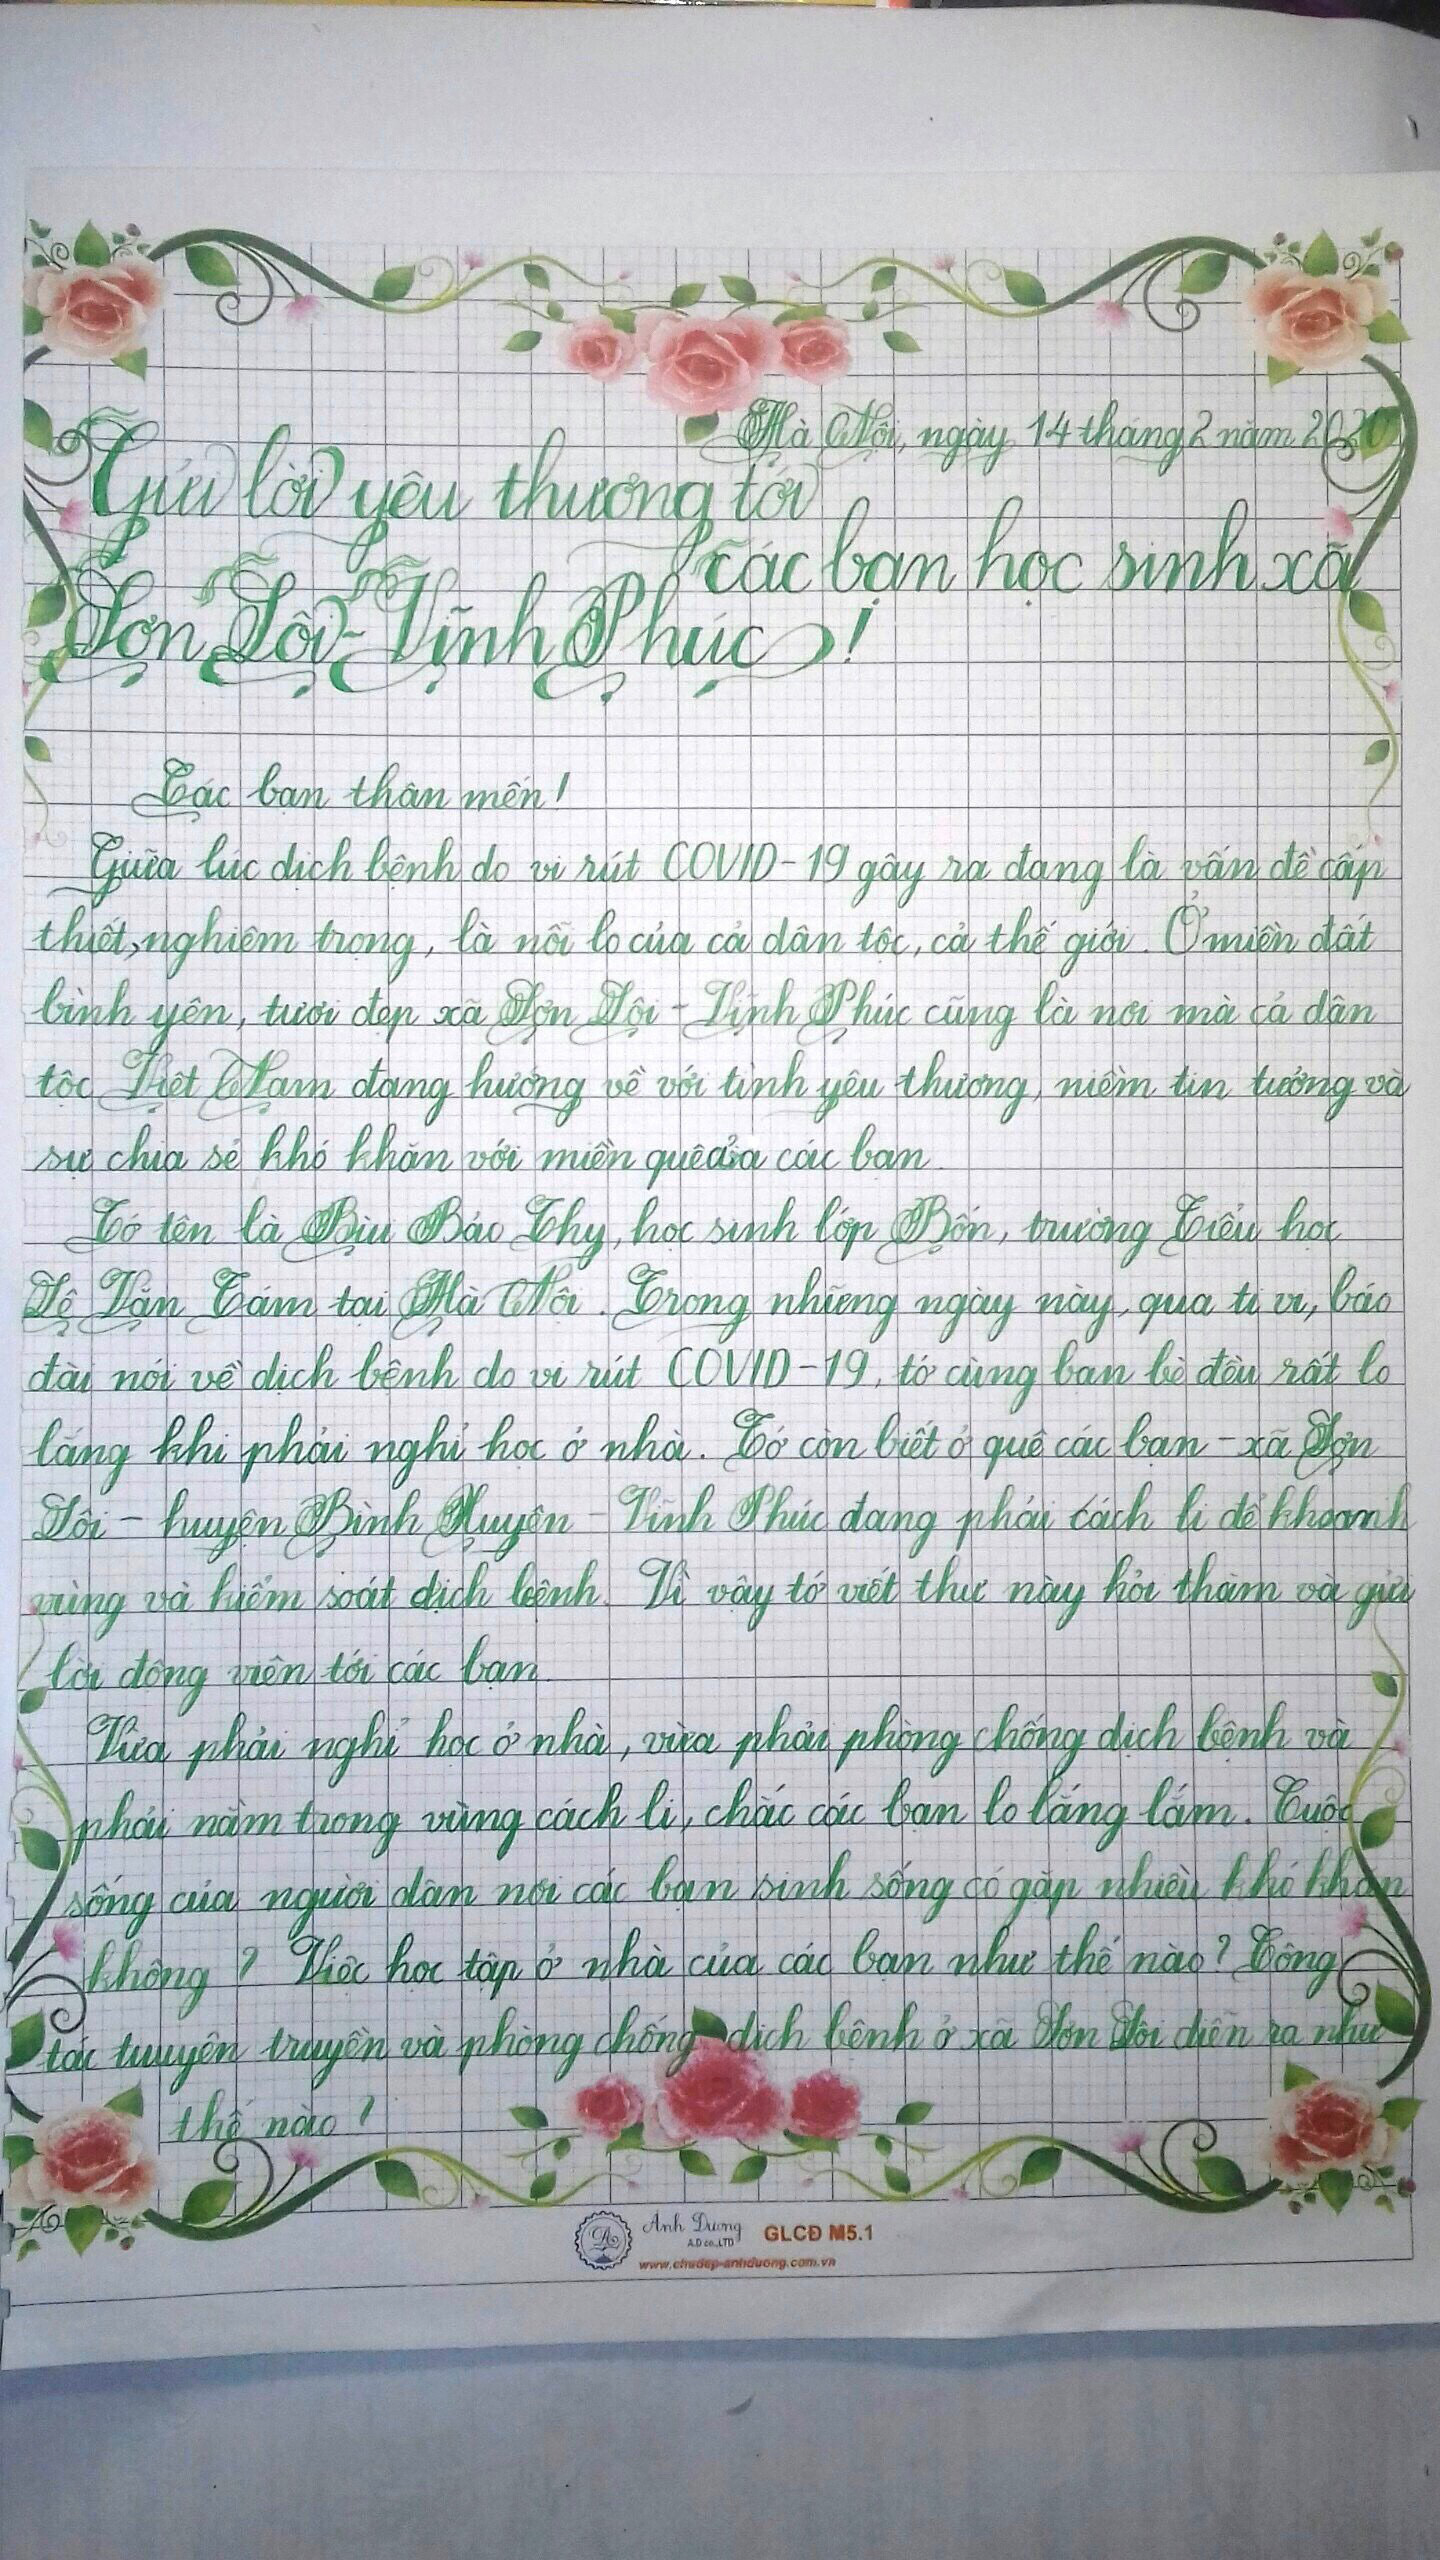 Hà Nội, ngày 14 tháng 2 năm 2020
Gửi lời yêu thương tới
các bạn học sinh xã
Sơn Lôi - Vĩnh Phúc!
Các bạn thân mến!
Giữa lúc dịch bệnh do vi rút COVID-19 gây ra đang là vấn đề cấp
thiết, nghiêm trọng, là nỗi lo của cả dân tộc, cả thế giới. Ở miền đất
bình yên, tươi đẹp xã Sơn Lôi - Vĩnh Phúc cũng là nơi mà cả dân
tộc Việt Nam đang hướng về với tình yêu thương, niềm tin tưởng và
sự chia sẻ khó khăn với miền quê của các bạn.
Tớ tên là Bùi Bảo Thy, học sinh lớp Bốn, trường Tiểu học
Lê Văn Tám tại Hà Nội. Trong những ngày này, qua ti vi, báo
đài nói về dịch bệnh do vi rút COVID-19, tớ cùng bạn bè đều rất lo
lắng khi phải nghỉ học ở nhà. Tớ còn biết ở quê các bạn - xã Sơn
Lôi - huyện Bình Xuyên - Vĩnh Phúc đang phải cách li để khoanh
vùng và kiểm soát dịch bệnh. Vì vậy tớ viết thư này hỏi thăm và gửi
lời động viên tới các bạn.
Vừa phải nghỉ học ở nhà, vừa phải phòng chống dịch bệnh và
phải nằm trong vùng cách li, chắc các bạn lo lắng lắm. Cuộc
sống của người dân nơi các bạn sinh sống có gặp nhiều khó khăn
không? Việc học tập ở nhà của các bạn như thế nào? Công
tác tuyên truyền và phòng chống dịch bệnh ở xã Sơn Lôi diễn ra như
thế nào?
Ánh Dương GLCĐ M5.1
A.D co.,LTD
www.chudep-anhduong.com.vn